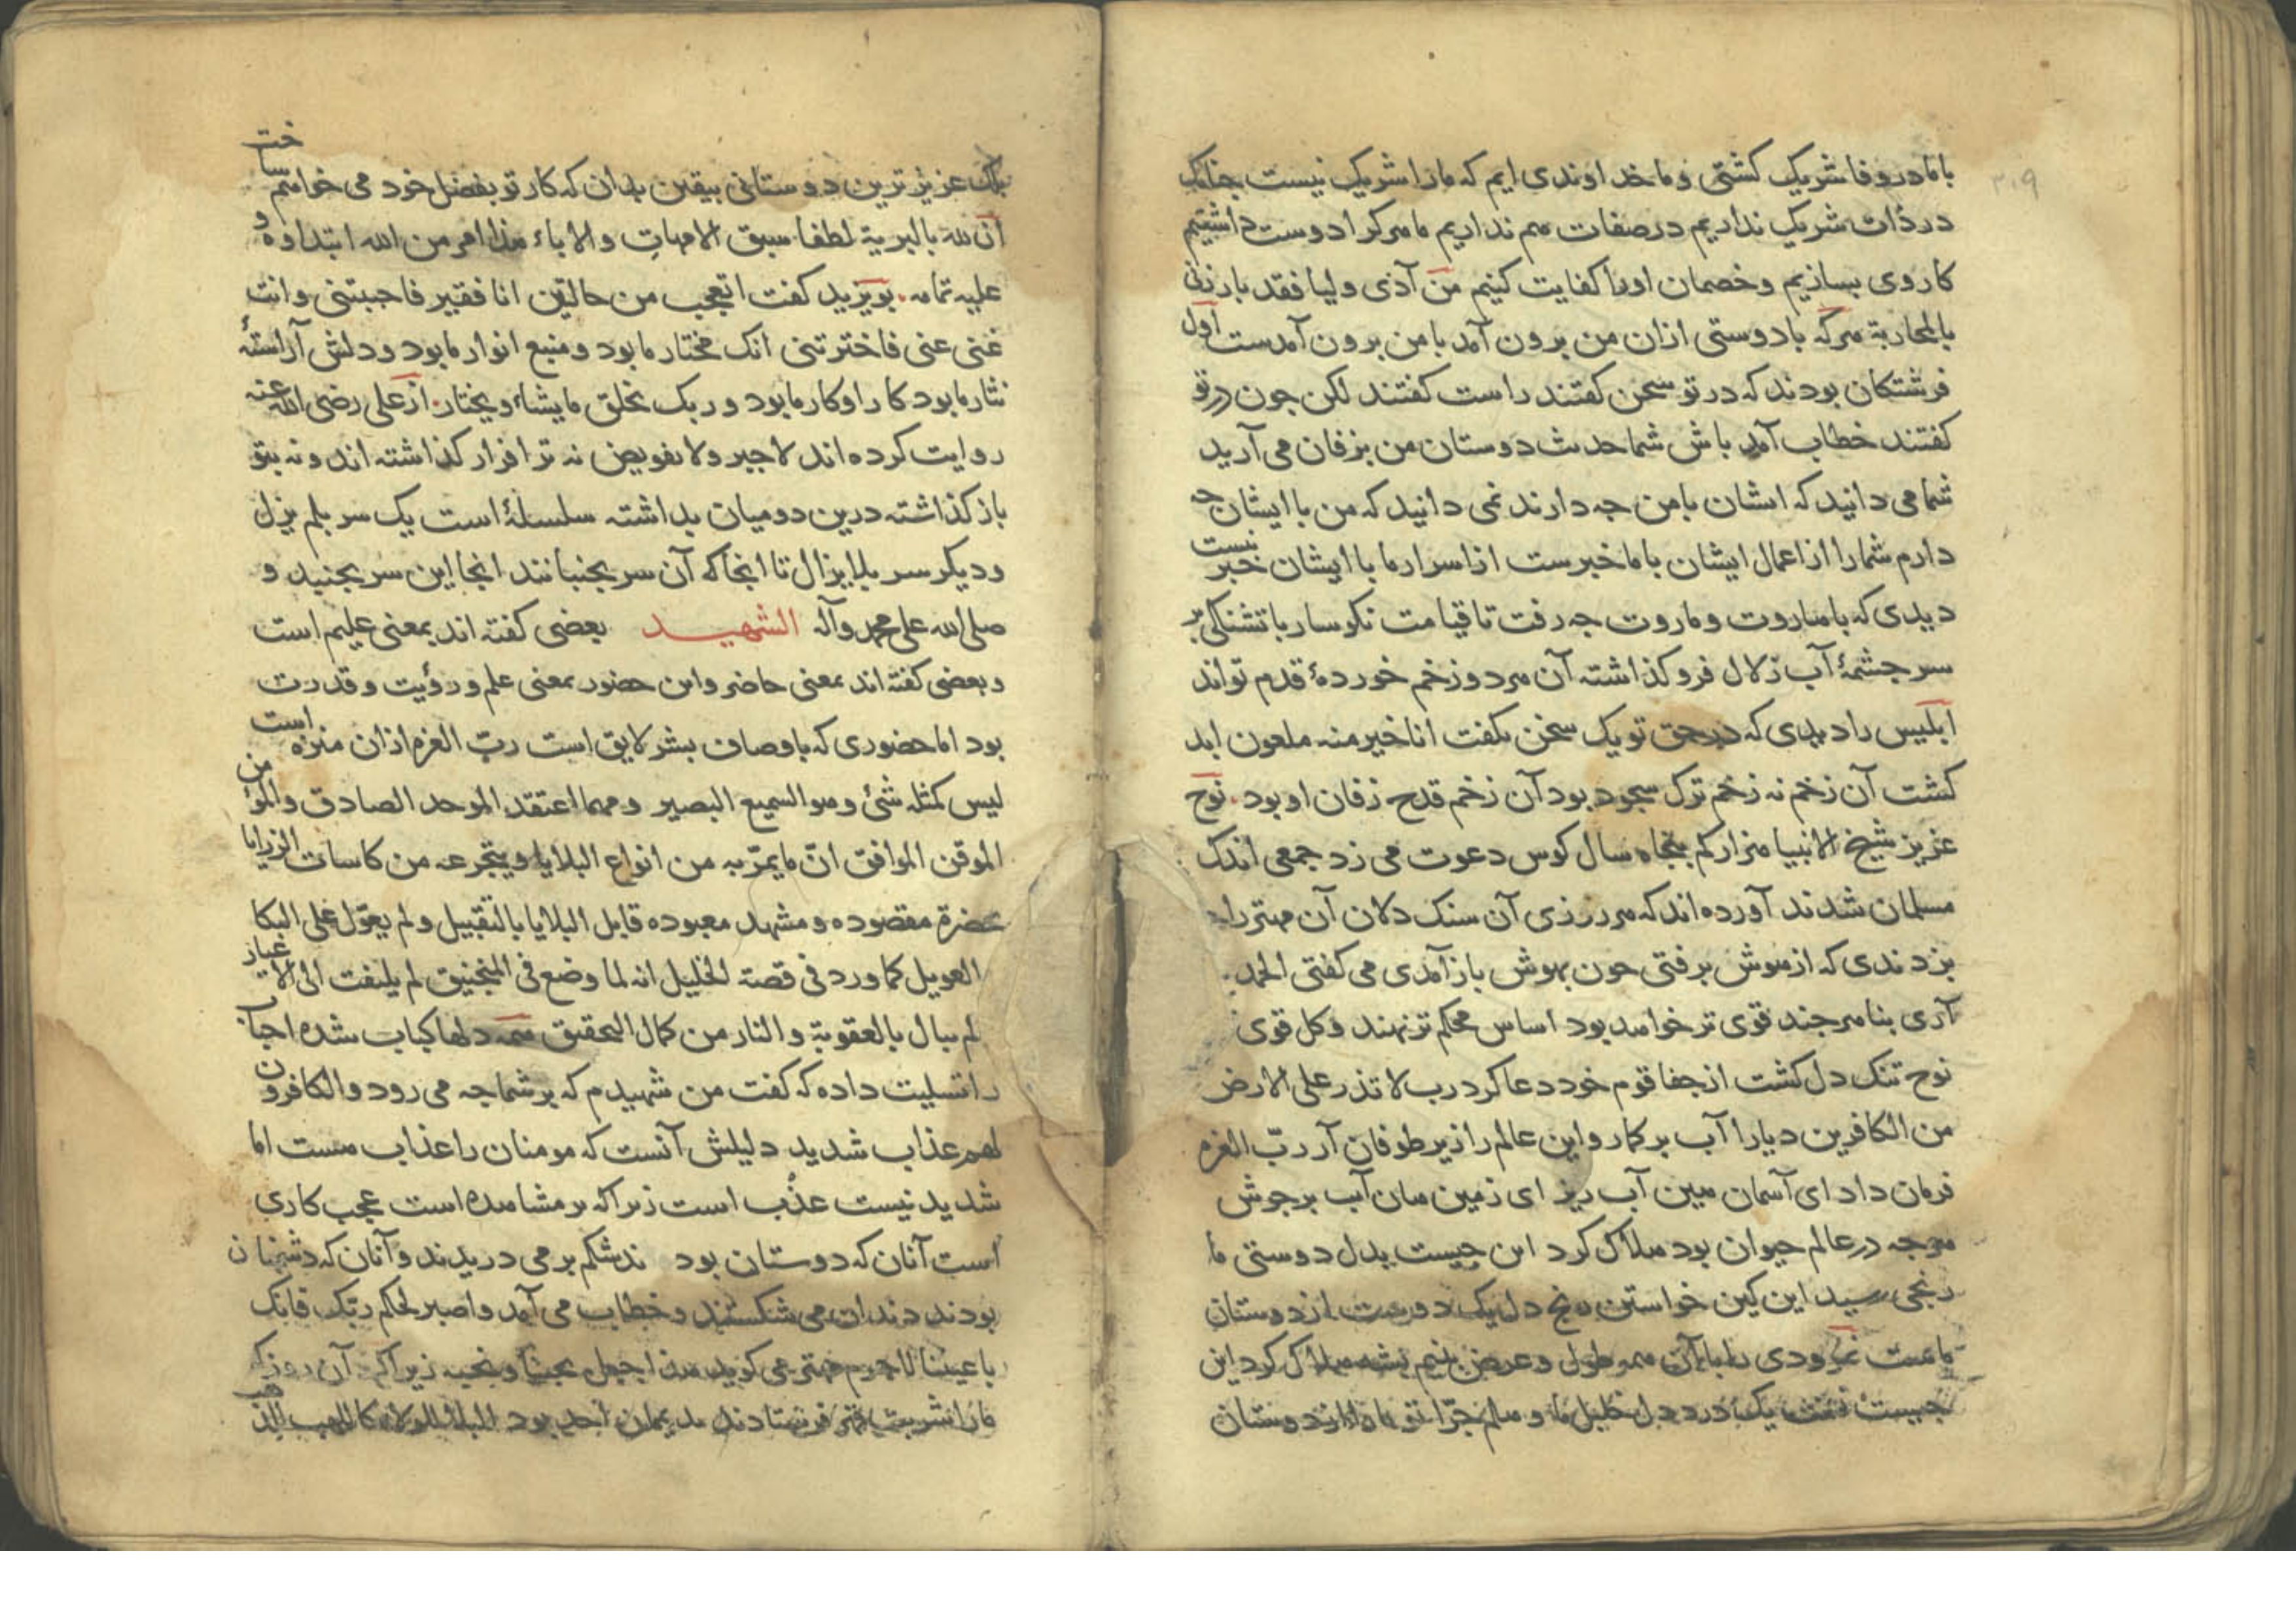 ۳۰۹
با ما در وفا شریک گشتی و ما خداوندی ایم که ما را شریک نیست چنانک
در ذات شریک نداریم در صفات هم نداریم ما هر کرا دوست داشتیم
کار وی بسازیم و خصمان او را کفایت کنیم من آذی ولیا فقد بارزنی
بالمحاربة هرکه با دوستی ازان من برون آمد با من برون آمدست اول
فرشتکان بودند که در تو سخن کفتند راست کفتند لکن جون در تو
کفتند خطاب آمد باش شما حدیث دوستان من بزفان می آرید
شما می دانید که ایشان با من جه دارند نمی دانید که من با ایشان جه
دارم شما را از اعمال ایشان با ما خبرست از اسرار ما با ایشان خبر نیست
دیدی که با هاروت و ماروت جه رفت تا قیامت نکوسار با تشنکی بر
سر جشمهٔ آب زلال فرو کذاشته آن هر دو زخم خوردهٔ قدم تواند
ابلیس را دیدی که در حق تو یک سخن بکفت انا خیر منه ملعون ابد
کشت آن زخم نه زخم ترک سجود بود آن زخم قدح زفان او بود. نوح
عزیز شیخ الانبیا هزار کم پنجاه سال کوس دعوت می زد جمعی اندک
مسلمان شدند آورده اند که هر روزی آن سنک دلان آن مهتر را
بزدندی که از هوش برفتی جون بهوش باز آمدی می کفتی الحمد
آری بنا هر جند قوی تر خواهد بود اساس محکم تر نهند و کل قوی
نوح تنک دل کشت از جفا قوم خود دعا کرد رب لا تذر علی الارض
من الکافرین دیارا آب بر کمار و این عالم را زیر طوفان آر رب العزه
فرمان داد ای آسمان هین آب ریز ای زمین هان آب بر جوش
هر جه در عالم حیوان بود هلاک کرد این جیست بدل دوستی ما
رنجی رسید این کین خواستن رنج دل یک دوست از دوستان
ماست نمرودی را با آن همه طول و عرض بنیم پشه هلاک کرد این
جیست یک درد دل خلیل ما و هلم جرا تو ما دار از دوستان
بلک عزیزترین دوستانی بیقین بدان که کار تو بفضل خود می خواهم ساخت
ان لله بالبریة لطفا سبق الامهات والاباء هذا امر من الله ابتداوه و
علیه تمامه. بویزید کفت اتعجب من حالتین انا فقیر فاحببتنی وانت
غنی عنی فاخترتنی انک مختار ما بود و منبع انوار ما بود و دلش آراستهٔ
نثار ما بود کار او کار ما بود و ربک یخلق ما یشاء و یختار. از علی رضی الله عنه
روایت کرده اند لا جبر ولا تفویض نه ترا فرار کذاشته اند و نه بتو
باز کذاشته درین دو میان بداشته سلسلهٔ است یک سر بلم یزل
و دیکر سر بلا یزال تا انجا که آن سر بجنبانند انجا این سر بجنبد و
صلی الله علی محمد وآله الشهید بعضی کفته اند بمعنی علیم است
و بعضی کفته اند بمعنی حاضر و این حضور بمعنی علم و رؤیت و قدرت
بود اما حضوری که باوصاف بشر لایق است رب العزه ازان منزه است
لیس کمثله شئ وهو السمیع البصیر ومهما اعتقد الموحد الصادق والمؤمن
الموقن الموافق ان ما یمر به من انواع البلایا ویتجرعه من کاسات الرزایا
بحضرة مقصوده ومشهد معبوده قابل البلایا بالتقبیل ولم یعول علی البکا
العویل کما ورد فی قصة الخلیل انه لما وضع فی المنجنیق لم یلتفت الی الاغیار
لم یبال بالعقوبة والنار من کمال التحقیق همه دلها کباب شده احباب
را تسلیت داده که کفت من شهیدم که بر شما جه می رود والکافرون
لهم عذاب شدید دلیلش آنست که مومنان را عذاب هست اما
شدید نیست عذب است زیرا که بر مشاهده است عجب کاری
است آنان که دوستان بودند شکم بر می دریدند و آنان که دشمنان
بودند دندان می شکستند و خطاب می آمد واصبر لحکم ربک فانک
باعیننا لاجرم مهتر می کوید زیرا که آن روز که
ما را شربت قهر فرستادند بود البلاء للولاء کاللهب للذهب